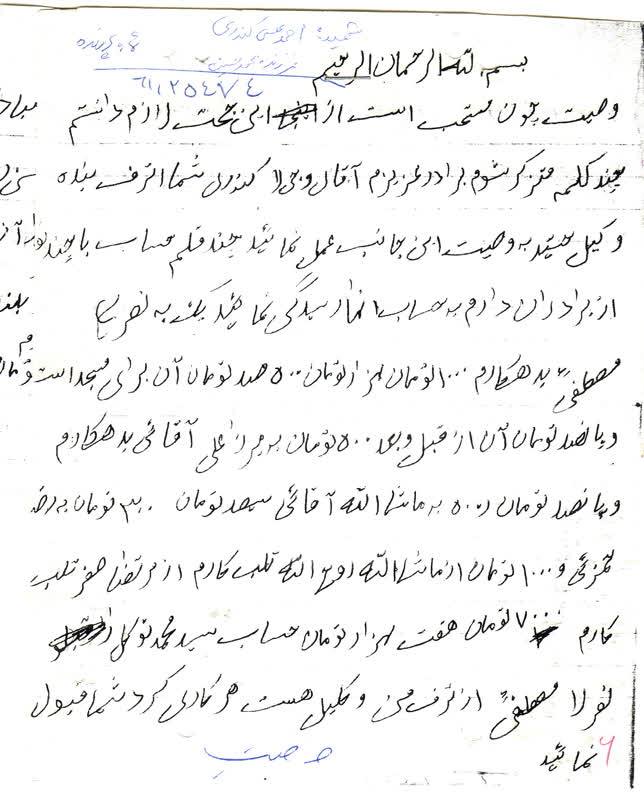 شهید: احمد حسن کندری
فرزند: محمد حسین
۶۱۱۲۵۴۷۴
بسم الله الرحمان الرحیم
وصیت چون مستحب است از این جهت لازم دانستم
چند کلمه متزکر شوم برادر عزیزم آقای کندری شما از ترف بنده
وکیل هستید به وصیت این جانب عمل نمائید چند قلم حساب با چند نفر
از برادران دارم به حساب انها رسیدگی نمائید یک به نصرالله
مصطفی بدهکارم ۱۰۰۰ تومان هزار تومان ۵۰۰ صد تومان آن برای مسجد است
و پانصد تومان آن از قبل و بعد ۵۰۰ تومان به میرزا علی آقائی بدهکارم
و پانصد تومان ۵۰۰ به ماشاالله آقائی سیصد تومان ۳۰۰ تومان به رضا
و ۱۰۰۰ تومان از ماشاالله روح الله تلب کارم از مرتضی صفر تلب
کارم ۷۰۰۰ تومان هفت هزار تومان حساب سید محمد توکل
نصرالا مصطفی از ترف من وکیل هست هر کاری کرد شما قبول
نمائید
۶